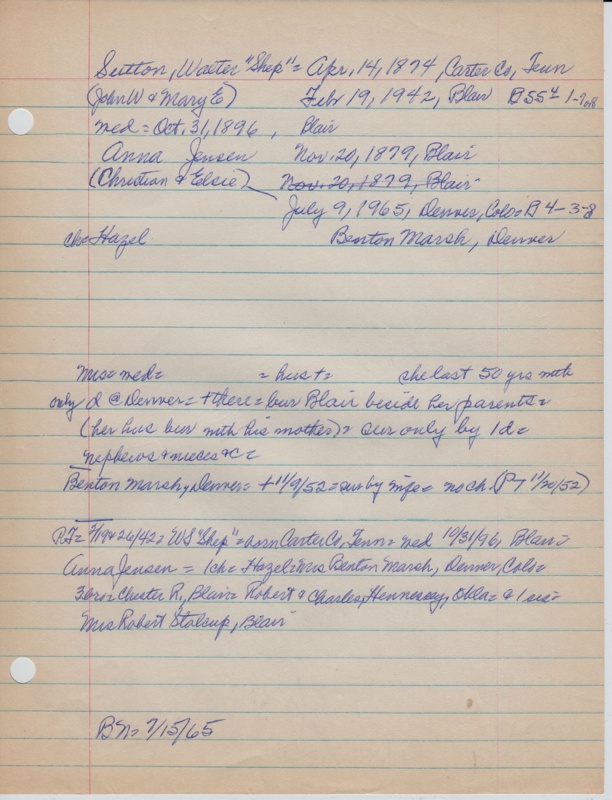 Sutton, Walter "Shep" = Apr. 14, 1874, Carter Co, Tenn
(John W & Mary E) Febr 19, 1942, Blair B55 4 1-7
med = Oct. 31, 1896, Blair
Anna Jensen Nov. 20, 1879, Blair
(Christian & Elsie) Nov. 20, 1879, Blair
July 9, 1965, Denver, Colo = B 4-3-8
ch = Hazel Benton Marsh, Denver
Mrs = med = = hus + = she last 50 yrs with
only d @ Denver = + there = bur Blair beside her parents =
(her hus bur with his mother) = sur only by 1 d =
nephews & nieces &c =
Benton Marsh, Denver = + 11/9/52 = sur by wife = no ch. (P7 11/20/52)
P.T = 2/19 & 26/42 = WS "Shep" = born Carter Co, Tenn = med 10/31/96, Blair =
Anna Jensen = 1 ch = Hazel = Mrs Benton Marsh, Denver, Colo =
3 bro = Chester R, Blair = Robert & Charles, Hennessey, Okla = & 1 sis =
Mrs Robert Stalcup, Blair
BN = 7/15/65